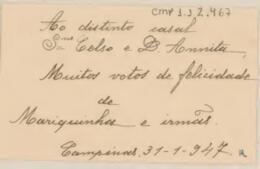 CMP 1.1.2.467
Ao distinto casal
Snr Celso e D. Annita,
Muitos votos de felicidade
de
Mariquinha e irmãs.
Campinas, 31-1-947.